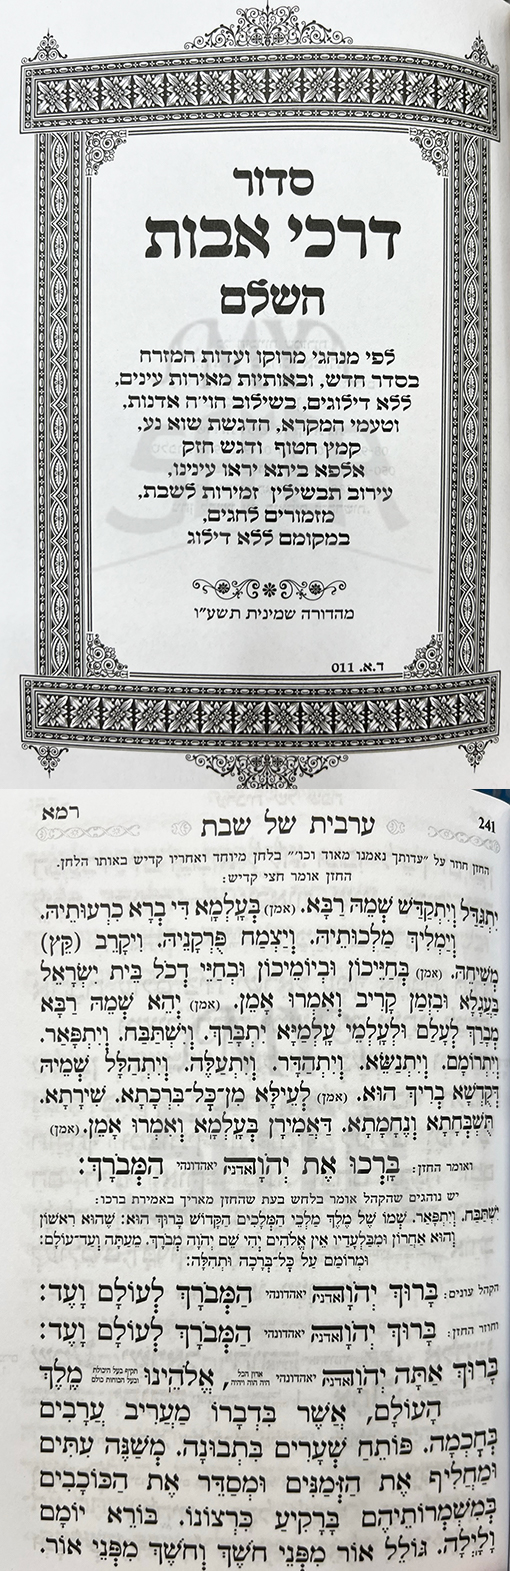 סדור
דרכי אבות
השלם
לפי מנהגי מרוקו ועדות המזרח
בסדר חדש, ובאותיות מאירות עינים,
ללא דילוגים, בשילוב הוי״ה אדנות,
וטעמי המקרא, הדגשת שוא נע,
קמץ חטוף ודגש חזק
אלפא ביתא יראו עינינו,
עירוב תבשילין זמירות לשבת,
מזמורים לחגים,
במקומם ללא דילוג
מהדורה שמינית תשע״ו
ד.א. 011
241 ערבית של שבת רמא
החזן חוזר על ״עדותך נאמנו מאוד וכו׳״ בלחן מיוחד ואחריו קדיש באותו הלחן.
החזן אומר חצי קדיש:
יִתְגַּדַּל וְיִתְקַדַּשׁ שְׁמֵהּ רַבָּא. (אמן) בְּעָלְמָא דִּי בְרָא כִרְעוּתֵיהּ.
וְיַמְלִיךְ מַלְכוּתֵיהּ. וְיַצְמַח פֻּרְקָנֵיהּ. וִיקָרֵב (קֵץ)
מְשִׁיחֵהּ. (אמן) בְּחַיֵּיכוֹן וּבְיוֹמֵיכוֹן וּבְחַיֵּי דְכֹל בֵּית יִשְׂרָאֵל
בַּעֲגָלָא וּבִזְמַן קָרִיב וְאִמְרוּ אָמֵן. (אמן) יְהֵא שְׁמֵהּ רַבָּא
מְבָרַךְ לְעָלַם וּלְעָלְמֵי עָלְמַיָּא יִתְבָּרַךְ. וְיִשְׁתַּבַּח. וְיִתְפָּאַר.
וְיִתְרוֹמַם. וְיִתְנַשֵּׂא. וְיִתְהַדָּר. וְיִתְעַלֶּה. וְיִתְהַלָּל שְׁמֵיהּ
דְּקֻדְשָׁא בְּרִיךְ הוּא. (אמן) לְעֵילָּא מִן־כָּל־בִּרְכָתָא. שִׁירָתָא.
תֻּשְׁבְּחָתָא וְנֶחָמָתָא. דַּאֲמִירָן בְּעָלְמָא וְאִמְרוּ אָמֵן. (אמן)
ואומר החזן: בָּרְכוּ אֶת יְהֹוָה אדנית יאהדונהי הַמְבֹרָךְ:
יש נוהגים שהקהל אומר בלחש בעת שהחזן מאריך באמירת ברכו:
יִשְׁתַּבַּח. וְיִתְפָּאַר. שְׁמוֹ שֶׁל מֶלֶךְ מַלְכֵי הַמְּלָכִים הַקָּדוֹשׁ בָּרוּךְ הוּא: שֶׁהוּא רִאשׁוֹן
וְהוּא אַחֲרוֹן וּמִבַּלְעָדָיו אֵין אֱלֹהִים יְהִי שֵׁם יְהֹוָה מְבֹרָךְ. מֵעַתָּה וְעַד־עוֹלָם:
וּמְרוֹמַם עַל כָּל־בְּרָכָה וּתְהִלָּה:
הקהל עונים: בָּרוּךְ יְהֹוָה אדנית יאהדונהי הַמְבֹרָךְ לְעוֹלָם וָעֶד:
וחוזר החזן: בָּרוּךְ יְהֹוָה אדנית יאהדונהי הַמְבֹרָךְ לְעוֹלָם וָעֶד:
בָּרוּךְ אַתָּה יְהֹוָה אדנית יאהדונהי אדון הכל היה הוה ויהיה, אֱלֹהֵינוּ תקיף בעל היכולת ובעל הכוחות כולם מֶלֶךְ
הָעוֹלָם, אֲשֶׁר בִּדְבָרוֹ מַעֲרִיב עֲרָבִים
בְּחָכְמָה. פּוֹתֵחַ שְׁעָרִים בִּתְבוּנָה. מְשַׁנֶּה עִתִּים
וּמַחֲלִיף אֶת הַזְּמַנִּים וּמְסַדֵּר אֶת הַכּוֹכָבִים
בְּמִשְׁמְרוֹתֵיהֶם בָּרָקִיעַ כִּרְצוֹנוֹ. בּוֹרֵא יוֹמָם
וָלָיְלָה. גּוֹלֵל אוֹר מִפְּנֵי חֹשֶׁךְ וְחֹשֶׁךְ מִפְּנֵי אוֹר.